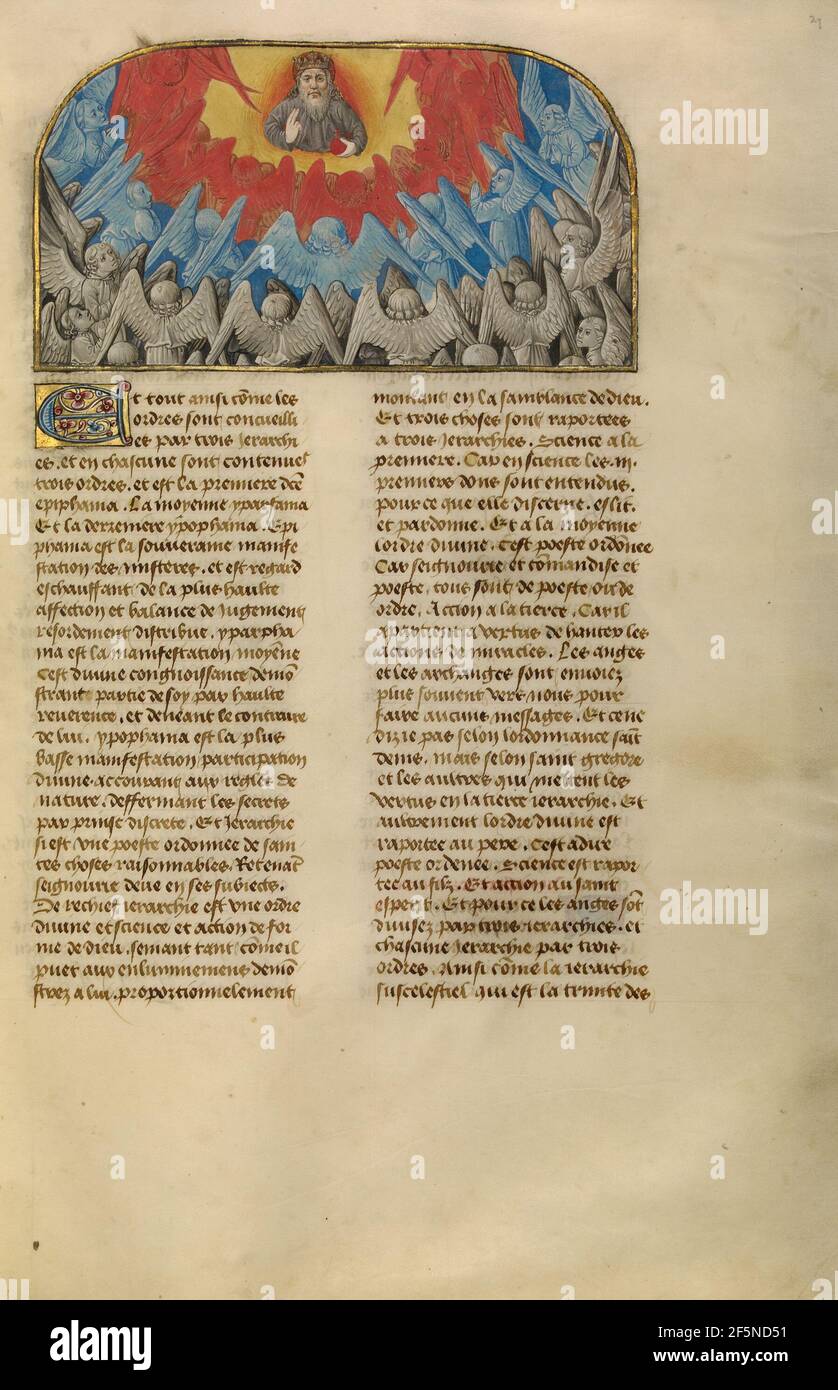 29
Et tout ainsi cōme les
ordres sont concueilli
es par trois Jerarchi
es. et en chascune sont contenues
trois ordres. et est la premiere dcē
epiphama. La moyenne yparfama
Et la derreniere ypophama. Epi
phama est la souveraine manife
station des misteres. et est regard
eschauffant de la plus haulte
affection et balance de Jugement
resordement distribue. yparpha
ma est la manifestation moyēne
Cest divine congnoissance demō
strant partie de soy par haulte
reverence. et deneant le contraire
de lui. ypophama est la plus
basse manifestation participation
divine accourant aux regles de
nature. deffermant les secrets
par prinse discrete. Et Jerarchie
si est une poeste ordonnee de sain
tes choses raisonnables. Retenāt
seignourie deue en ses subiects.
De rechief ierarchie est une ordre
divine et science et action de for
me de dieu. semant tant cōme il
puet aux enluminemens demō
strez a lui. proportionnelement
montant en la samblance de dieu.
Et trois choses sont raportees
a trois Jerarchies. Science a la
premiere. Car en science les .iii.
premiers dons sont entendus.
pour ce que elle discerne. eslit.
et pardonne. Et a la moyenne
lordre divine. Cest poeste ordonee
Car seignourie et comandise et
poeste. tous sont de poeste ou de
ordre. Action a la tierce. Car il
apartient a vertus de hanter les
actions de miracles. Les anges
et les archanges sont envoiez
plus souvent vers nous pour
faire aucuns messages. Et ce ne
di ie pas selon lordonnance saīt
denis. mais selon saint gregore
et les aultres qui mettent les
vertus en la tierce ierarchie. Et
aultrement lordre divine est
raportee au pere. Cest adire
poeste ordenee. Science est rapor
tee au filz. Et action au saint
esperit. Et pour ce les anges sōt
divisez par trois ierarchies. et
chascune Jerarchie par trois
ordres. Ainsi cōme la ierarchie
suscelestiel qui est la trinite des
alamy
Image ID: 2F5ND51
www.alamy.com